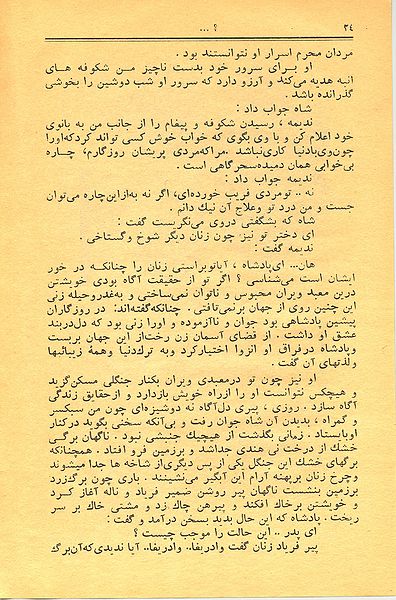 ۳٤
؟ ...
مردان محرم اسرار او نتوانستند بود .
او برای سرور خود بدست ناچیز من شکوفه های
انبه هدیه می‌کند و آرزو دارد که سرور او شب دوشین را بخوشی
گذرانده باشد .
شاه جواب داد :
ندیمه ، رسیدن شکوفه و پیغام را از جانب من به بانوی
خود اعلام کن و با وی بگوی که خواب خوش کسی تواند کرد که اورا
چون وی بادنیا کاری نباشد . مرا که مردی پریشان روزگارم، چـاره
بی‌خوابی همان دمیده سحرگاهی است .
ندیمه جواب داد :
نه .. تو مردی فریب خورده‌ای، اگر نه به از این چاره می‌توان
جست و من درد تو و علاج آن نیک دانم .
شاه که بشگفتی دروی می‌نگریست گفت :
ای دختر تو نیز چون زنان دیگر شوخ و گستاخی .
ندیمه گفت :
هان... ای پادشاه ، آیا تو براستی زنان را چنانکـه در خور
ایشان است می‌شناسی ؟ اگر تو از حقیقت آگاه بودی خویشتن
درین معبد ویران محبوس و ناتوان نمی‌ساختی و به غدر و حیله زنی
این چنین روی از جهان بر نمی‌تافتی . چنانکه گفته‌اند: در روزگاران
پیشین پادشاهی بود جوان و ناآزموده و اورا زنی بود که دل در بند
عشق او داشت . از قضای آسمان زن رخت از این جهان بر بست
و پادشاه در فراق او انزوا اختیار کرد و به ترك دنیا و همهٔ زیبائیها
و لذتهای آن گفت .
او نیز چون تو در معبدی ویران بکنار جنگلی مسکن گزید
و هیچکس نتوانست او را از راه خویش باز دارد و از حقایق زندگی
آگاه سازد . روزی ، پیری دل‌آگاه نه دوشیزه‌ای چون من سبکسر
و گمراه ، بدیدن آن شاه جوان رفت و بی‌آنکه سخنی بگوید در کنار
او بایستاد . زمانی بگذشت از هیچیك جنبشی نبود . ناگهان برگـی
خشك از درخت نی هندی جدا شد و بر زمین فرو افتاد . همچنانکه
برگهای خشك این جنگل یکی از پس دیگری از شاخه ها جدا میشوند
و چرخ زنان بر پهنه آرام این آبگیر می‌نشینند . باری چون برگ زرد
بر زمین بنشست ناگهان پیر روشن ضمیر فریاد و ناله آغاز کـرد
و خویشتن بر خاك افکند و پیرهن چاك زد و مشتی خاك بر سر
ریخت . پادشاه که این حال بدید بسخن درآمد و گفت :
ای پدر .. این حالت را موجب چیست ؟
پیر فریاد زنان گفت وادریغا.. وادریغا.. آیا ندیدی که آن برگ